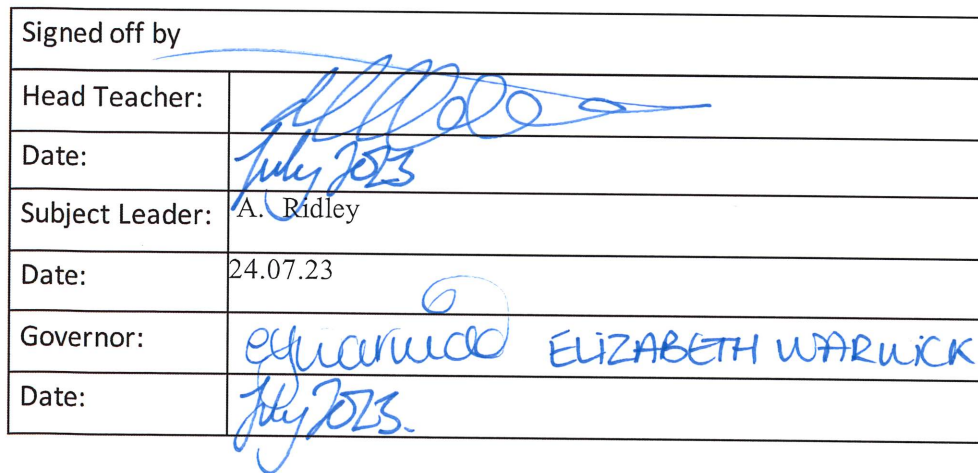 Signed off by
Head Teacher:
Date: July 2023
Subject Leader: A. Ridley
Date: 24.07.23
Governor: ELIZABETH WARWICK
Date: July 2023.